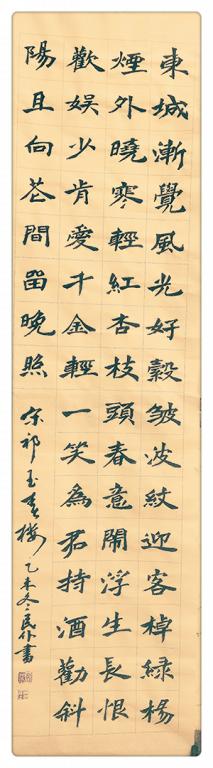 東城漸覺風光好縠皺波紋迎客棹綠楊
煙外曉寒輕紅杏枝頭春意鬧浮生長恨
歡娛少肯愛千金輕一笑為君持酒勸斜
陽且向花間留晚照
宋祁玉春樓 乙未冬民書